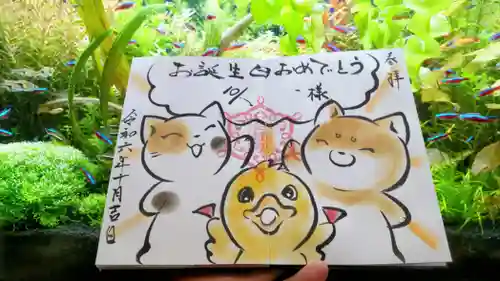 奉拝
お誕生日おめでとう
10/
様
令和六年十月吉日